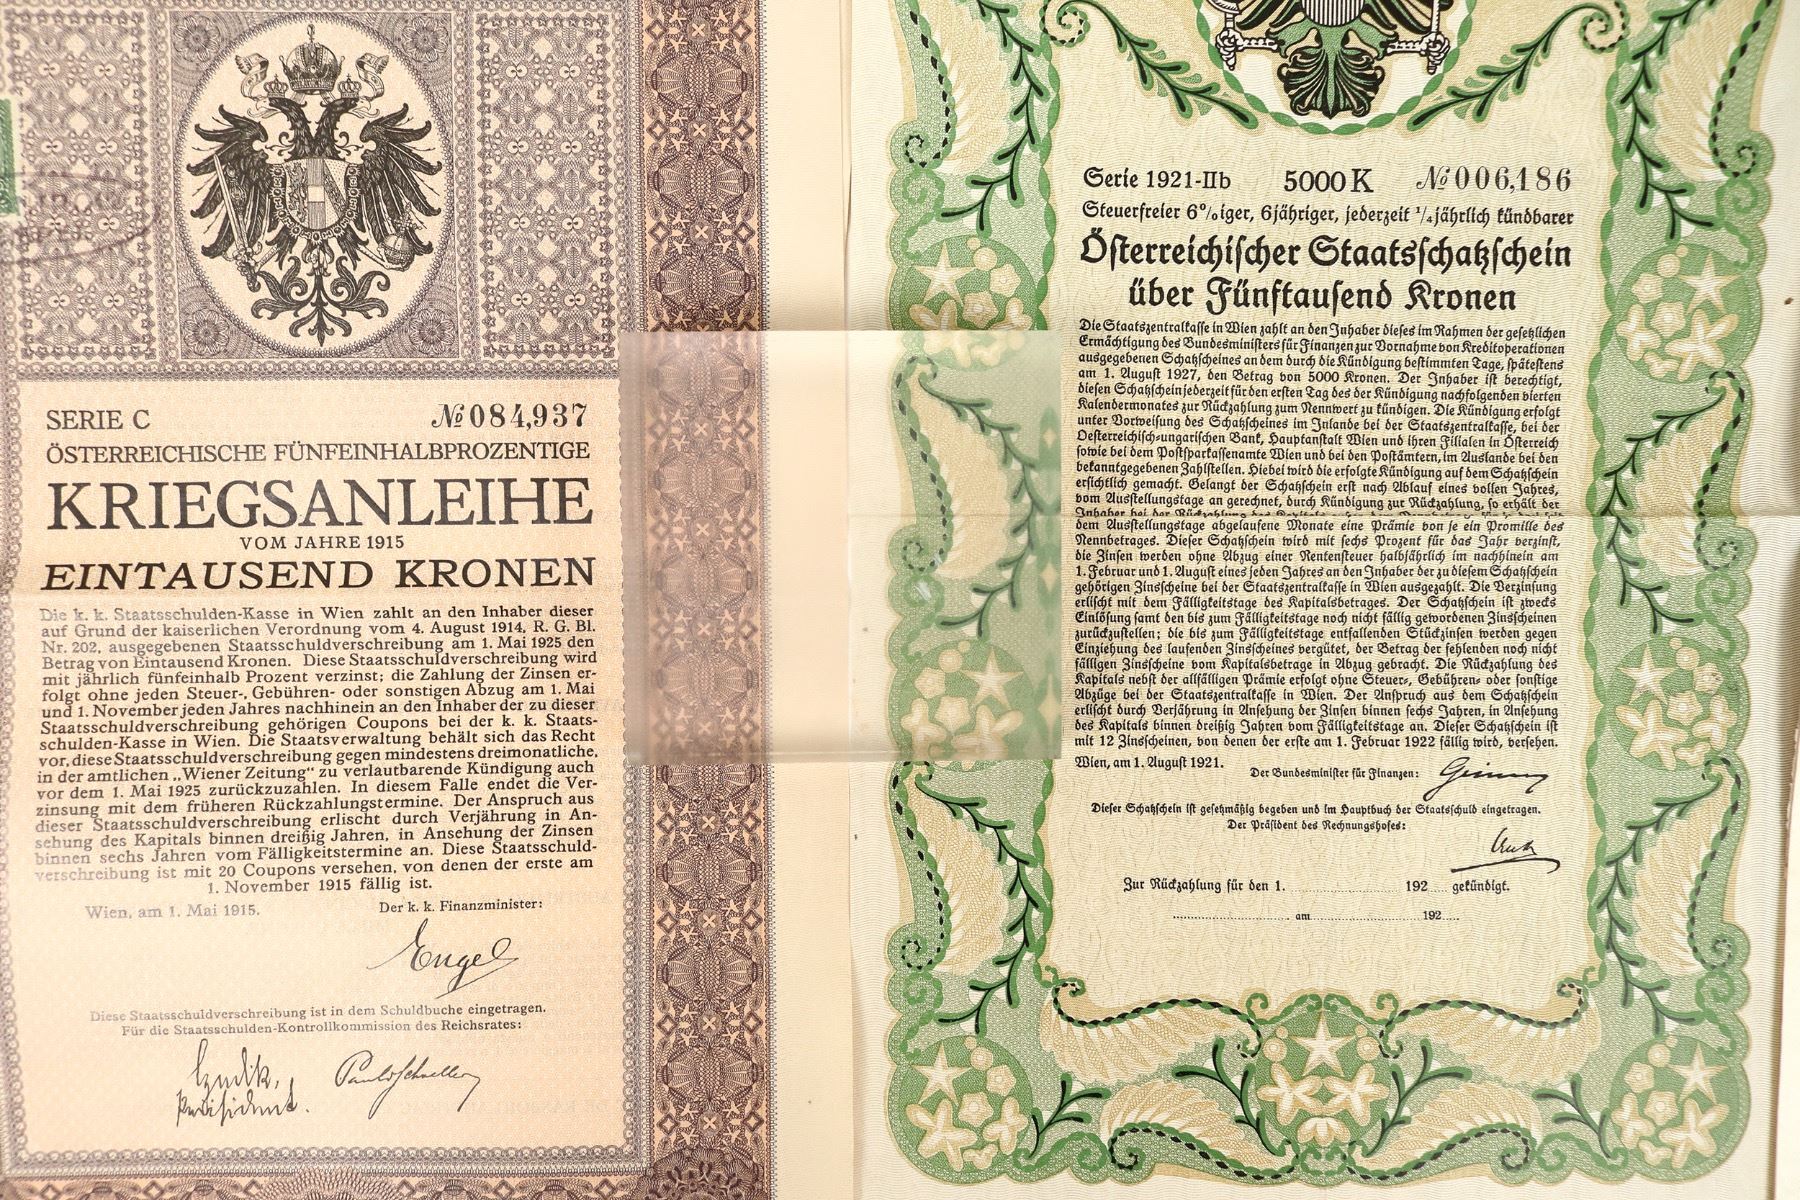 SERIE C № 084,937
ÖSTERREICHISCHE FÜNFEINHALBPROZENTIGE
KRIEGSANLEIHE
VOM JAHRE 1915
EINTAUSEND KRONEN
Die k. k. Staatsschulden-Kasse in Wien zahlt an den Inhaber dieser
auf Grund der kaiserlichen Verordnung vom 4. August 1914, R. G. Bl.
Nr. 202, ausgegebenen Staatsschuldverschreibung am 1. Mai 1925 den
Betrag von Eintausend Kronen. Diese Staatsschuldverschreibung wird
mit jährlich fünfeinhalb Prozent verzinst; die Zahlung der Zinsen er-
folgt ohne jeden Steuer-, Gebühren- oder sonstigen Abzug am 1. Mai
und 1. November jeden Jahres nachhinein an den Inhaber der zu dieser
Staatsschuldverschreibung gehörigen Coupons bei der k. k. Staats-
schulden-Kasse in Wien. Die Staatsverwaltung behält sich das Recht
vor, diese Staatsschuldverschreibung gegen mindestens dreimonatliche,
in der amtlichen „Wiener Zeitung“ zu verlautbarende Kündigung auch
vor dem 1. Mai 1925 zurückzuzahlen. In diesem Falle endet die Ver-
zinsung mit dem früheren Rückzahlungstermine. Der Anspruch aus
dieser Staatsschuldverschreibung erlischt durch Verjährung in An-
sehung des Kapitals binnen dreißig Jahren, in Ansehung der Zinsen
binnen sechs Jahren vom Fälligkeitstermine an. Diese Staatsschuld-
verschreibung ist mit 20 Coupons versehen, von denen der erste am
1. November 1915 fällig ist.
Wien, am 1. Mai 1915. Der k. k. Finanzminister:
Engel
Diese Staatsschuldverschreibung ist in dem Schuldbuche eingetragen.
Für die Staatsschulden-Kontrollkommission des Reichsrates:
Präsident.
Serie 1921-IIb 5000 K № 006,186
Steuerfreier 6%iger, 6jähriger, jederzeit ¼jährlich kündbarer
Österreichischer Staatsschatzschein
über Fünftausend Kronen
Die Staatszentralkasse in Wien zahlt an den Inhaber dieses im Rahmen der gesetzlichen
Ermächtigung des Bundesministers für Finanzen zur Vornahme von Kreditoperationen
ausgegebenen Schatzscheines an dem durch die Kündigung bestimmten Tage, spätestens
am 1. August 1927, den Betrag von 5000 Kronen. Der Inhaber ist berechtigt,
diesen Schatzschein jederzeit für den ersten Tag des der Kündigung nachfolgenden vierten
Kalendermonates zur Rückzahlung zum Nennwert zu kündigen. Die Kündigung erfolgt
unter Vorweisung des Schatzscheines im Inlande bei der Staatszentralkasse, bei der
Oesterreichisch-ungarischen Bank, Hauptanstalt Wien und ihren Filialen in Österreich
sowie bei dem Postsparkassenamte Wien und bei den Postämtern, im Auslande bei den
bekanntgegebenen Zahlstellen. Hiebei wird die erfolgte Kündigung auf dem Schatzschein
ersichtlich gemacht. Gelangt der Schatzschein erst nach Ablauf eines vollen Jahres,
vom Ausstellungstage an gerechnet, durch Kündigung zur Rückzahlung, so erhält der
Inhaber bei der Rückzahlung des Kapitals
dem Ausstellungstage abgelaufene Monate eine Prämie von je ein Promille des
Nennbetrages. Dieser Schatzschein wird mit sechs Prozent für das Jahr verzinst,
die Zinsen werden ohne Abzug einer Rentensteuer halbjährlich im nachhinein am
1. Februar und 1. August eines jeden Jahres an den Inhaber der zu diesem Schatzschein
gehörigen Zinsscheine bei der Staatszentralkasse in Wien ausgezahlt. Die Verzinsung
erlischt mit dem Fälligkeitstage des Kapitalsbetrages. Der Schatzschein ist zwecks
Einlösung samt den bis zum Fälligkeitstage noch nicht fällig gewordenen Zinsscheinen
zurückzustellen; die bis zum Fälligkeitstage entfallenden Stückzinsen werden gegen
Einziehung des laufenden Zinsscheines vergütet, der Betrag der fehlenden noch nicht
fälligen Zinsscheine vom Kapitalsbetrage in Abzug gebracht. Die Rückzahlung des
Kapitals nebst der allfälligen Prämie erfolgt ohne Steuer-, Gebühren- oder sonstige
Abzüge bei der Staatszentralkasse in Wien. Der Anspruch aus dem Schatzschein
erlischt durch Verjährung in Ansehung der Zinsen binnen sechs Jahren, in Ansehung
des Kapitals binnen dreißig Jahren vom Fälligkeitstage an. Dieser Schatzschein ist
mit 12 Zinsscheinen, von denen der erste am 1. Februar 1922 fällig wird, versehen.
Wien, am 1. August 1921.
Der Bundesminister für Finanzen:
Dieser Schatzschein ist gesetzmäßig begeben und im Hauptbuch der Staatsschuld eingetragen.
Der Präsident des Rechnungshofes:
Zur Rückzahlung für den 1. 192 gekündigt.
am 192